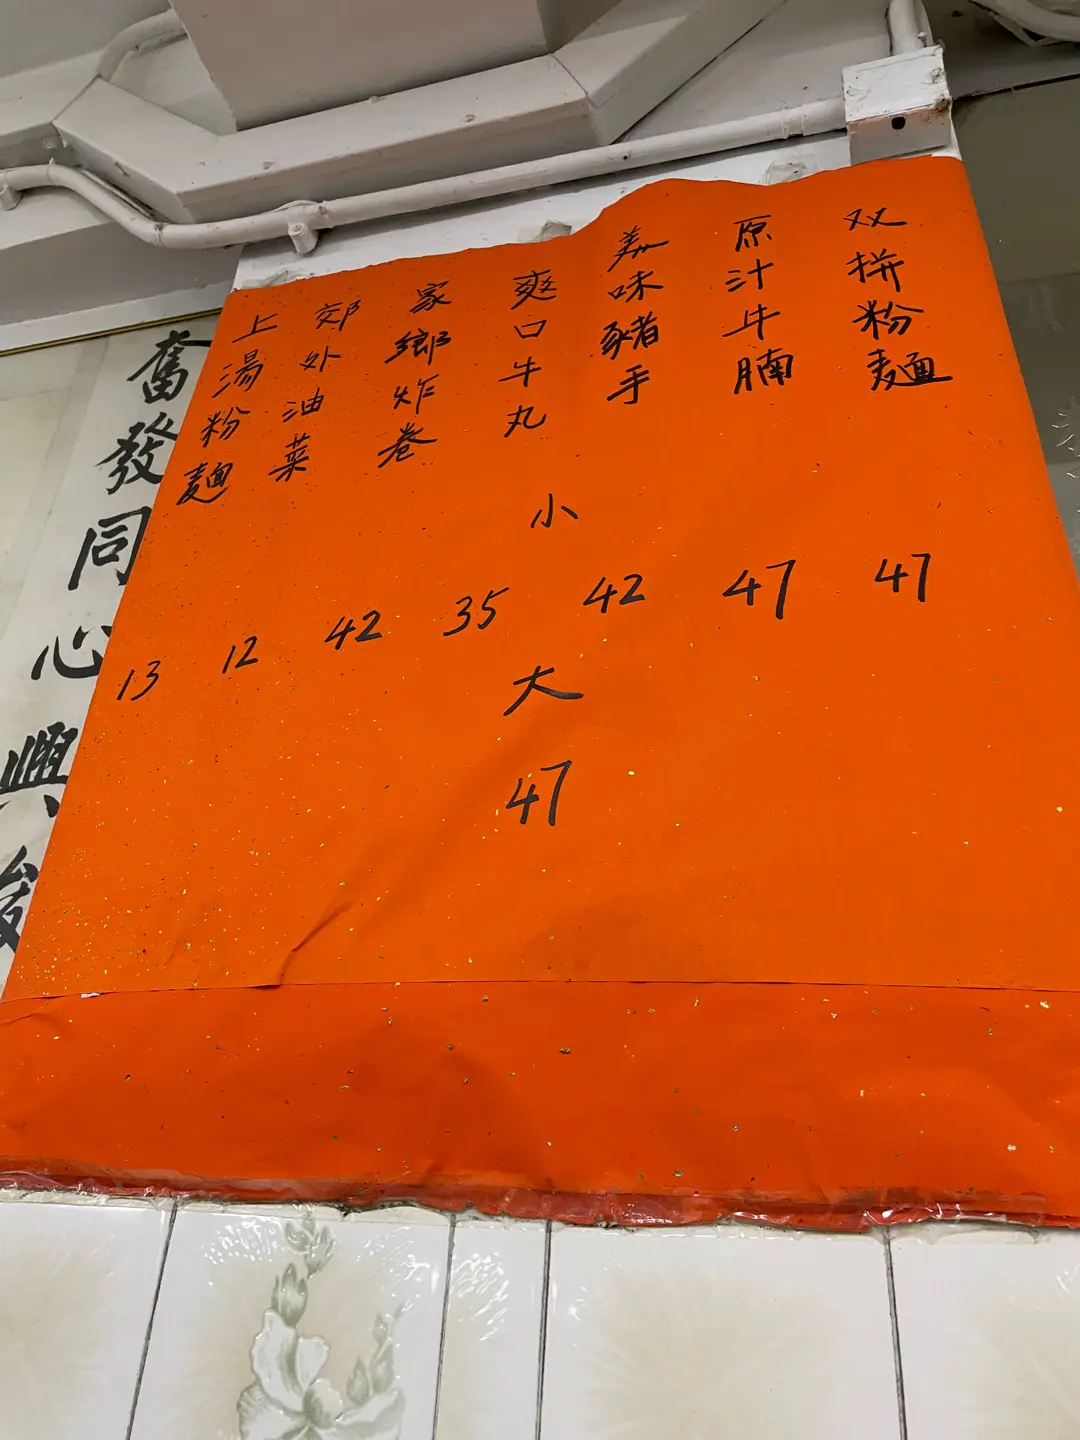 双拼粉麵
47
原汁牛腩
47
美味豬手
42
爽口牛丸
小
35
大
47
家鄉炸卷
42
郊外油菜
12
上湯粉麵
13
奮發同心興